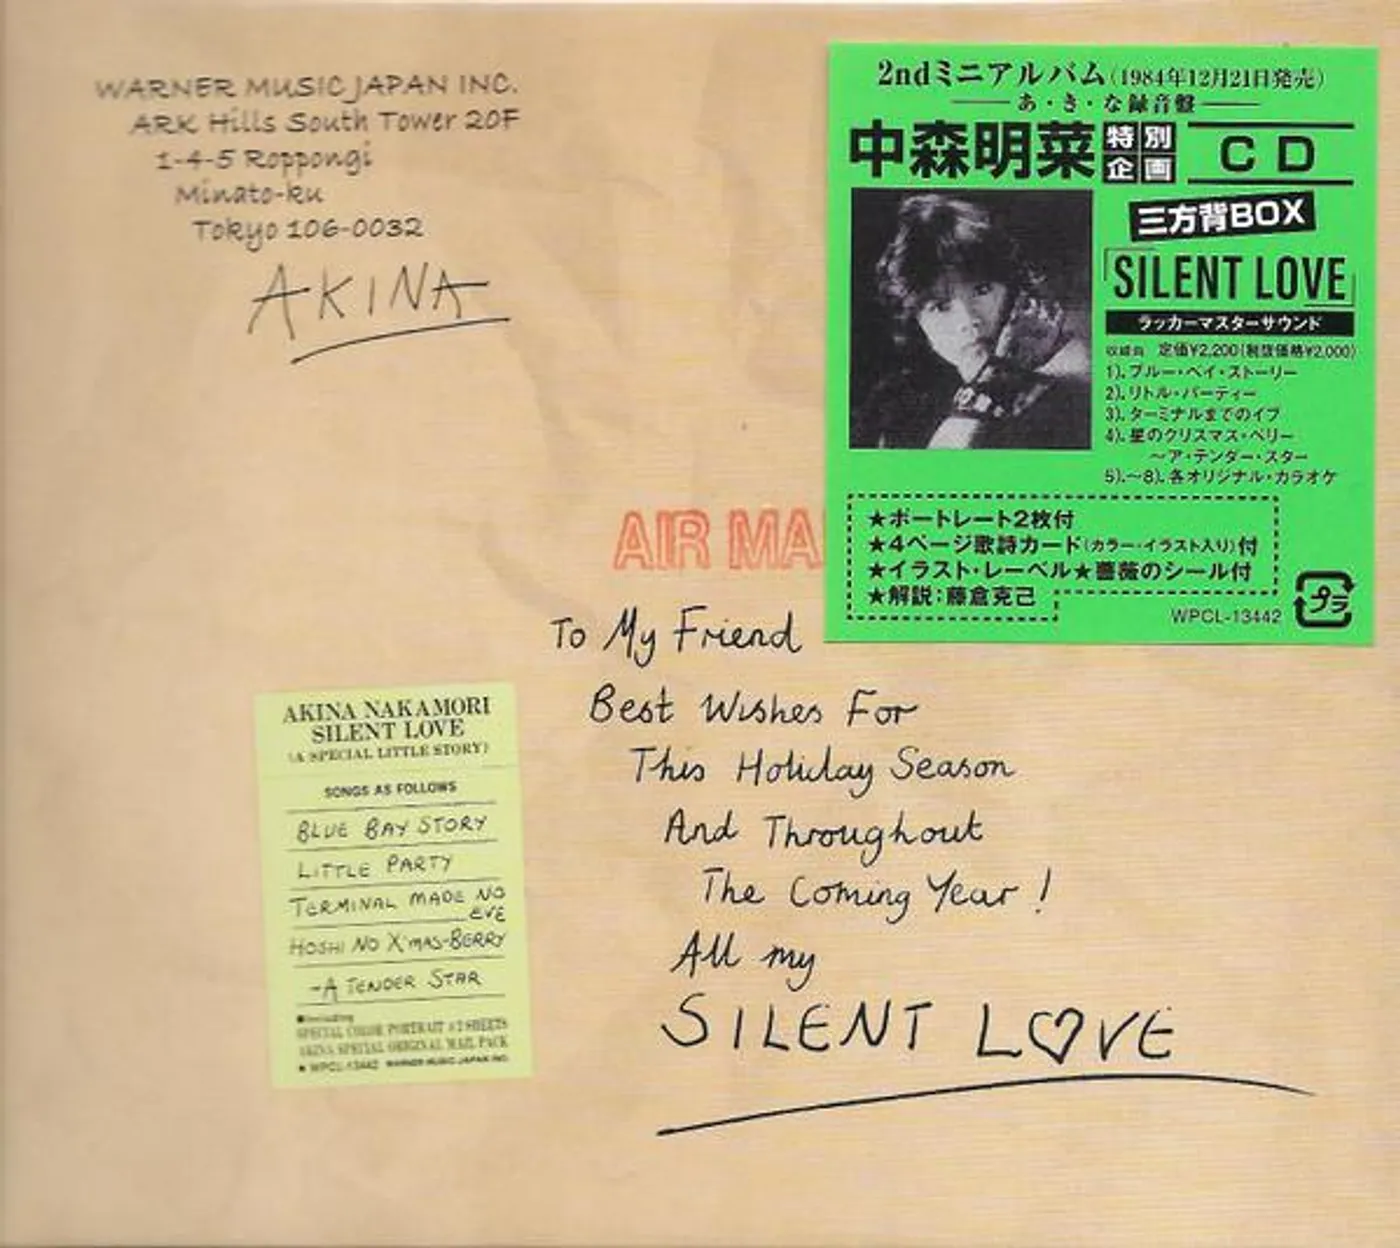 WARNER MUSIC JAPAN INC.
ARK Hills South Tower 20F
1-4-5 Roppongi
Minato-ku
Tokyo 106-0032
AKINA
2ndミニアルバム(1984年12月21日発売)
あ・き・な録音盤
中森明菜 特別企画 CD
三方背BOX
「SILENT LOVE」
ラッカーマスターサウンド
収録曲 定価¥2,200(税抜価格¥2,000)
1).ブルー・ベイ・ストーリー
2).リトル・パーティー
3).ターミナルまでのイブ
4).星のクリスマス・ベリー
〜ア・テンダー・スター
5).〜8).各オリジナル・カラオケ
★ポートレート2枚付
★4ページ歌詩カード(カラー・イラスト入り)付
★イラスト・レーベル★薔薇のシール付
★解説:藤倉克己
WPCL-13442
プラ
AIR MA
To My Friend
Best Wishes For
This Holiday Season
And Throughout
The Coming Year!
All my
SILENT LOVE
AKINA NAKAMORI
SILENT LOVE
(A SPECIAL LITTLE STORY)
SONGS AS FOLLOWS
BLUE BAY STORY
LITTLE PARTY
TERMINAL MADE NO
EVE
HOSHI NO X'MAS-BERRY
-A TENDER STAR
■Including
SPECIAL COLOR PORTRAIT 2 SHEETS
AKINA SPECIAL ORIGINAL MAIL PACK
WPCL-13442 WARNER MUSIC JAPAN INC.